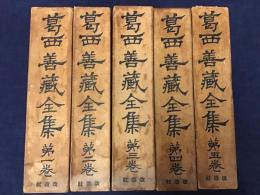 葛西善藏全集 第一卷
改造社
葛西善藏全集 第二卷
改造社
葛西善藏全集 第三卷
改造社
葛西善藏全集 第四卷
改造社
葛西善藏全集 第五卷
改造社